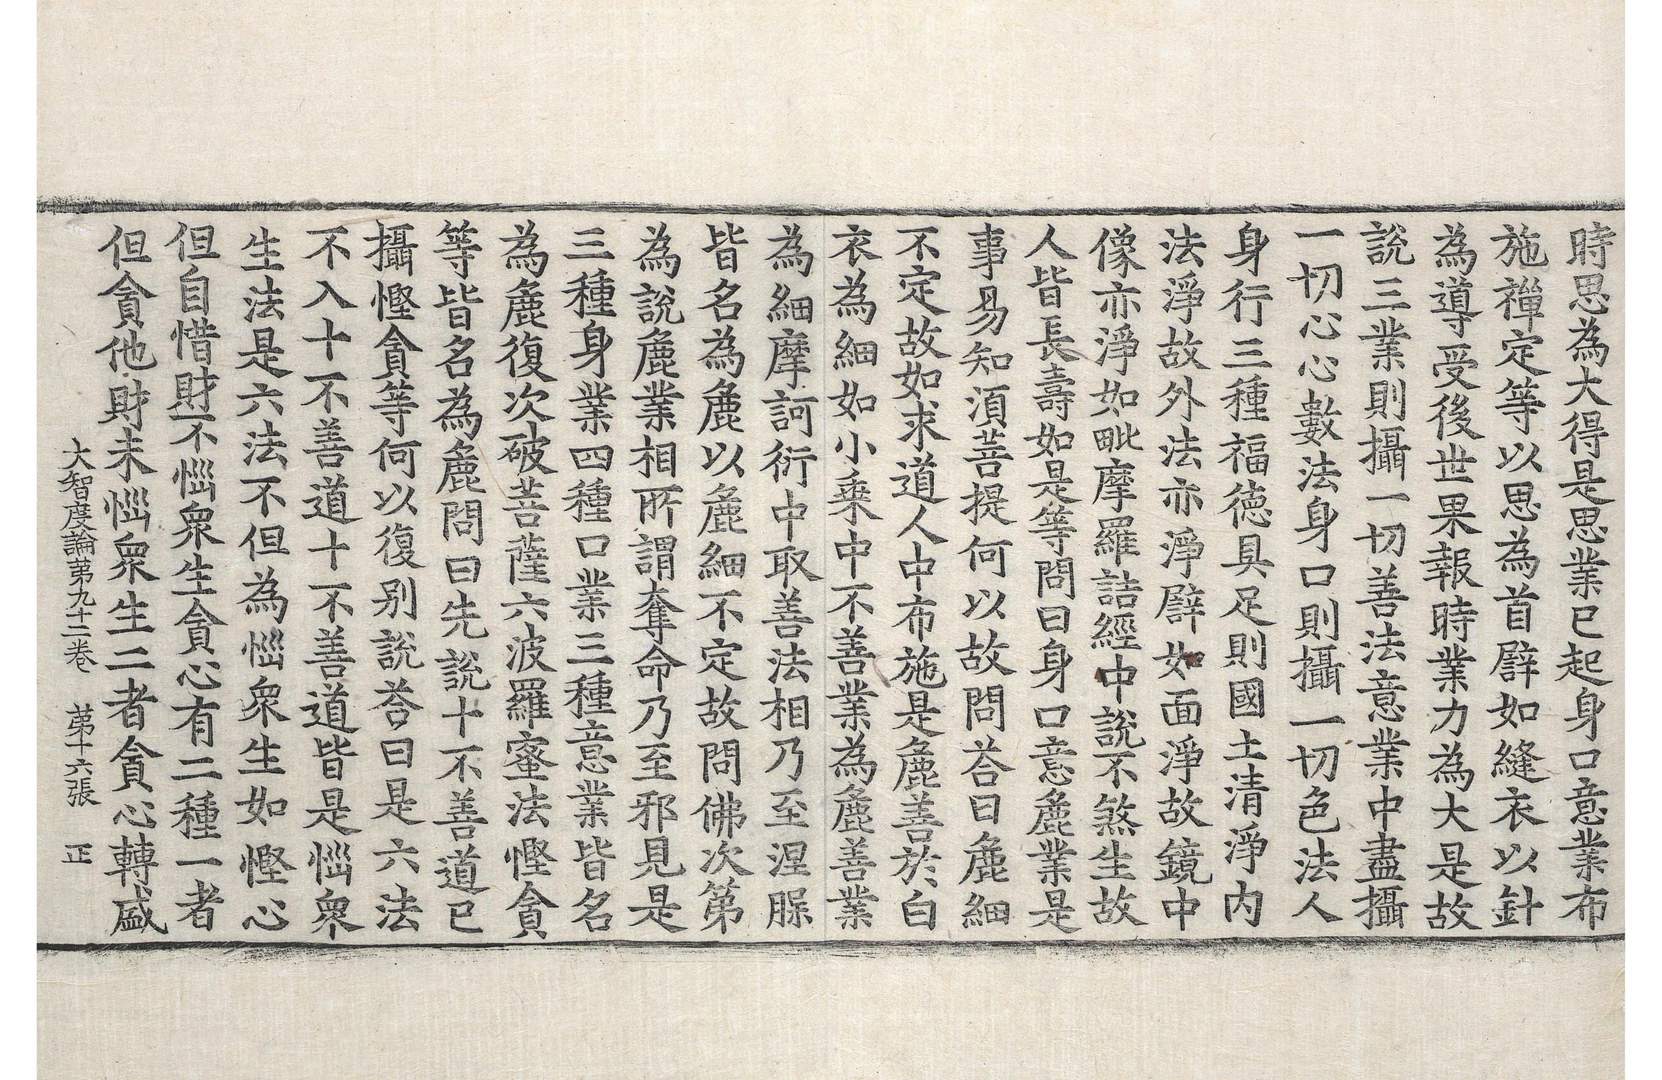 時思為大得是思業已起身口意業布
施禪定等以思為首譬如縫衣以針
為導受後世果報時業力為大是故
說三業則攝一切善法意業中盡攝
一切心心數法身口則攝一切色法人
身行三種福德具足則國土清淨內
法淨故外法亦淨譬如面淨故鏡中
像亦淨如毗摩羅詰經中說不煞生故
人皆長壽如是等問曰身口意麁業是
事易知湏菩提何以故問荅曰麁細
不定故如求道人中布施是麁善於白
衣為細如小乘中不善業為麁善業
為細摩訶衍中取善法相乃至涅脲
皆名為麁以麁細不定故問佛次第
為說麁業相所謂奪命乃至邪見是
三種身業四種口業三種意業皆名
為麁復次破菩薩六波羅蜜法慳貪
等皆名為麁問曰先說十不善道已
攝慳貪等何以復别說荅曰是六法
不入十不善道十不善道皆是惱衆
生法是六法不但為惱衆生如慳心
但自惜財不惱衆生貪心有二種一者
但貪他財未惱衆生二者貪心轉盛
大智度論第九十二卷　第十六張　正